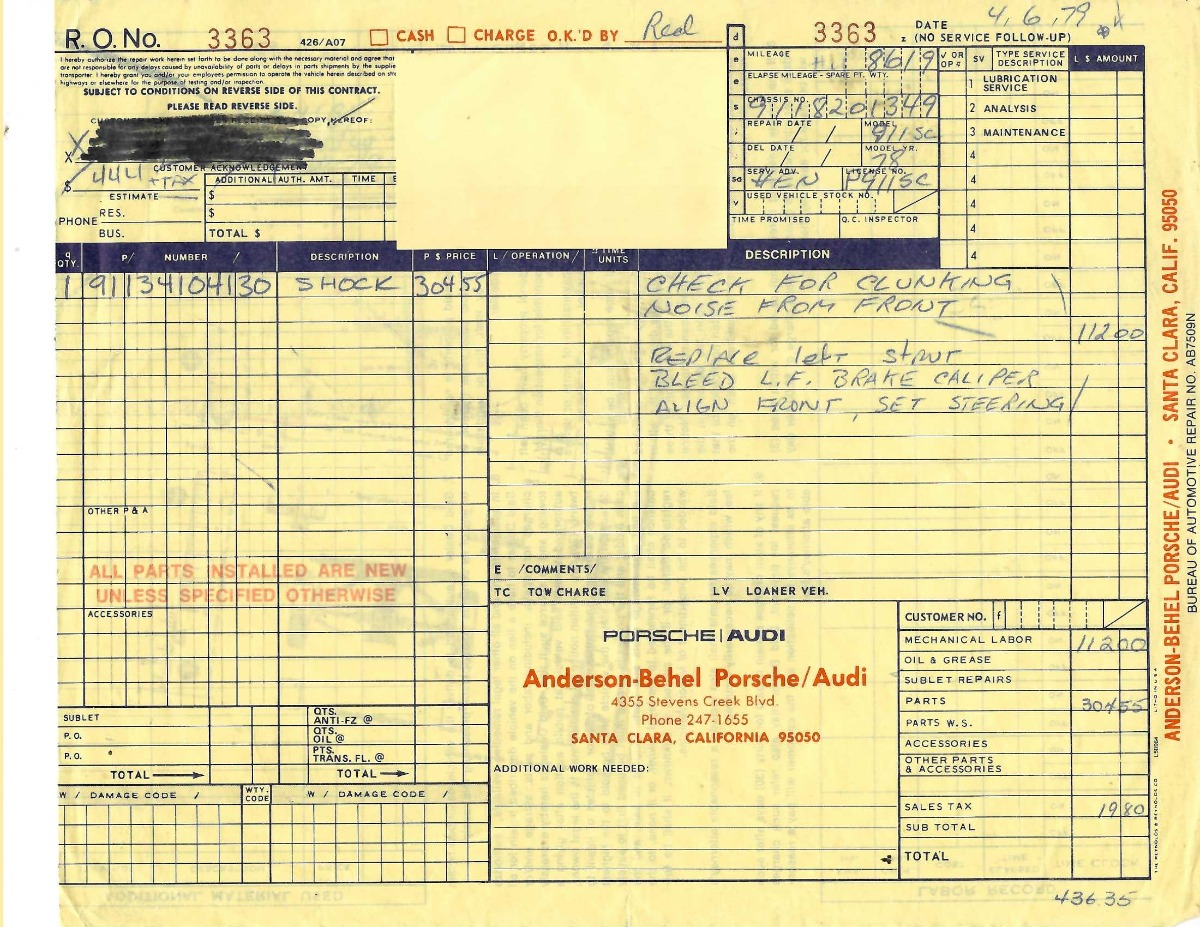 R. O. No. 3363 426/A07 CASH CHARGE O.K.'D BY
3363
DATE 4,6,79
z (NO SERVICE FOLLOW-UP)
I hereby authorize the repair work herein set forth to be done along with the necessary material and agree that
are not responsible for any delays caused by unavailability of parts or delays in parts shipments by the supplie
transporter. I hereby grant you and/or your employees permission to operate the vehicle herein described on
highways or elsewhere for the purpose of testing and/or inspection.
SUBJECT TO CONDITIONS ON REVERSE SIDE OF THIS CONTRACT.
PLEASE READ REVERSE SIDE.
COPY HEREOF:
X
X
CUSTOMER ACKNOWLEDGEMENT
$ 444 + TAX
ESTIMATE
ADDITIONAL AUTH. AMT. TIME
$
$
TOTAL $
PHONE
RES.
BUS.
MILEAGE 8619
ELAPSE MILEAGE - SPARE PT. WTY.
CHASSIS NO. 9118201349
REPAIR DATE / / MODEL 911SC
DEL DATE / / MODEL YR. 78
SERV. ADV. KEN LICENSE NO. P911SC
USED VEHICLE STOCK NO.
TIME PROMISED Q.C. INSPECTOR
SV TYPE SERVICE DESCRIPTION L $ AMOUNT
1 LUBRICATION SERVICE
2 ANALYSIS
3 MAINTENANCE
4
4
4
4
4
QTY. P/ NUMBER / DESCRIPTION P $ PRICE L / OPERATION / TIME UNITS DESCRIPTION
1 91134104130 SHOCK 304.55 CHECK FOR CLUNKING
NOISE FROM FRONT
11200
REPLACE left strut
BLEED L.F. BRAKE CALIPER
ALIGN FRONT, SET STEERING
OTHER P & A
ALL PARTS INSTALLED ARE NEW
UNLESS SPECIFIED OTHERWISE
ACCESSORIES
E /COMMENTS/
TC TOW CHARGE LV LOANER VEH.
SUBLET
P.O.
P.O.
TOTAL
QTS. ANTI-FZ @
QTS. OIL @
PTS. TRANS. FL. @
TOTAL
W / DAMAGE CODE / WTY. CODE W / DAMAGE CODE /
PORSCHE | AUDI
Anderson-Behel Porsche/Audi
4355 Stevens Creek Blvd.
Phone 247-1655
SANTA CLARA, CALIFORNIA 95050
ADDITIONAL WORK NEEDED:
CUSTOMER NO. f
MECHANICAL LABOR 11200
OIL & GREASE
SUBLET REPAIRS
PARTS 30455
PARTS W.S.
ACCESSORIES
OTHER PARTS & ACCESSORIES
SALES TAX 1980
SUB TOTAL
TOTAL
436.35
ANDERSON-BEHEL PORSCHE/AUDI • SANTA CLARA, CALIF. 95050
BUREAU OF AUTOMOTIVE REPAIR NO. AB7509N